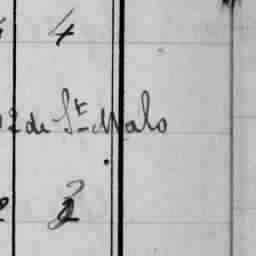 4
2 de St-Malo
2